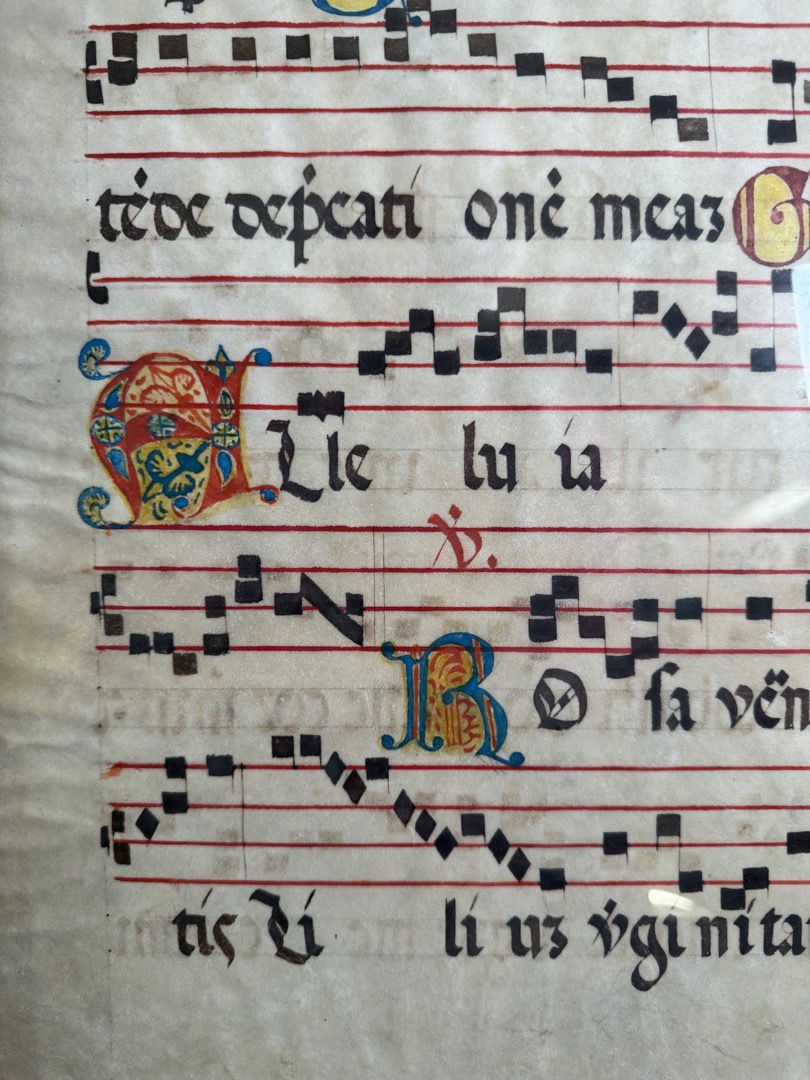 tēde dep̄cati onē meaʒ G
Alle lu ia
℣.
RO sa vēn
tis Li li uʒ v̄gi nita